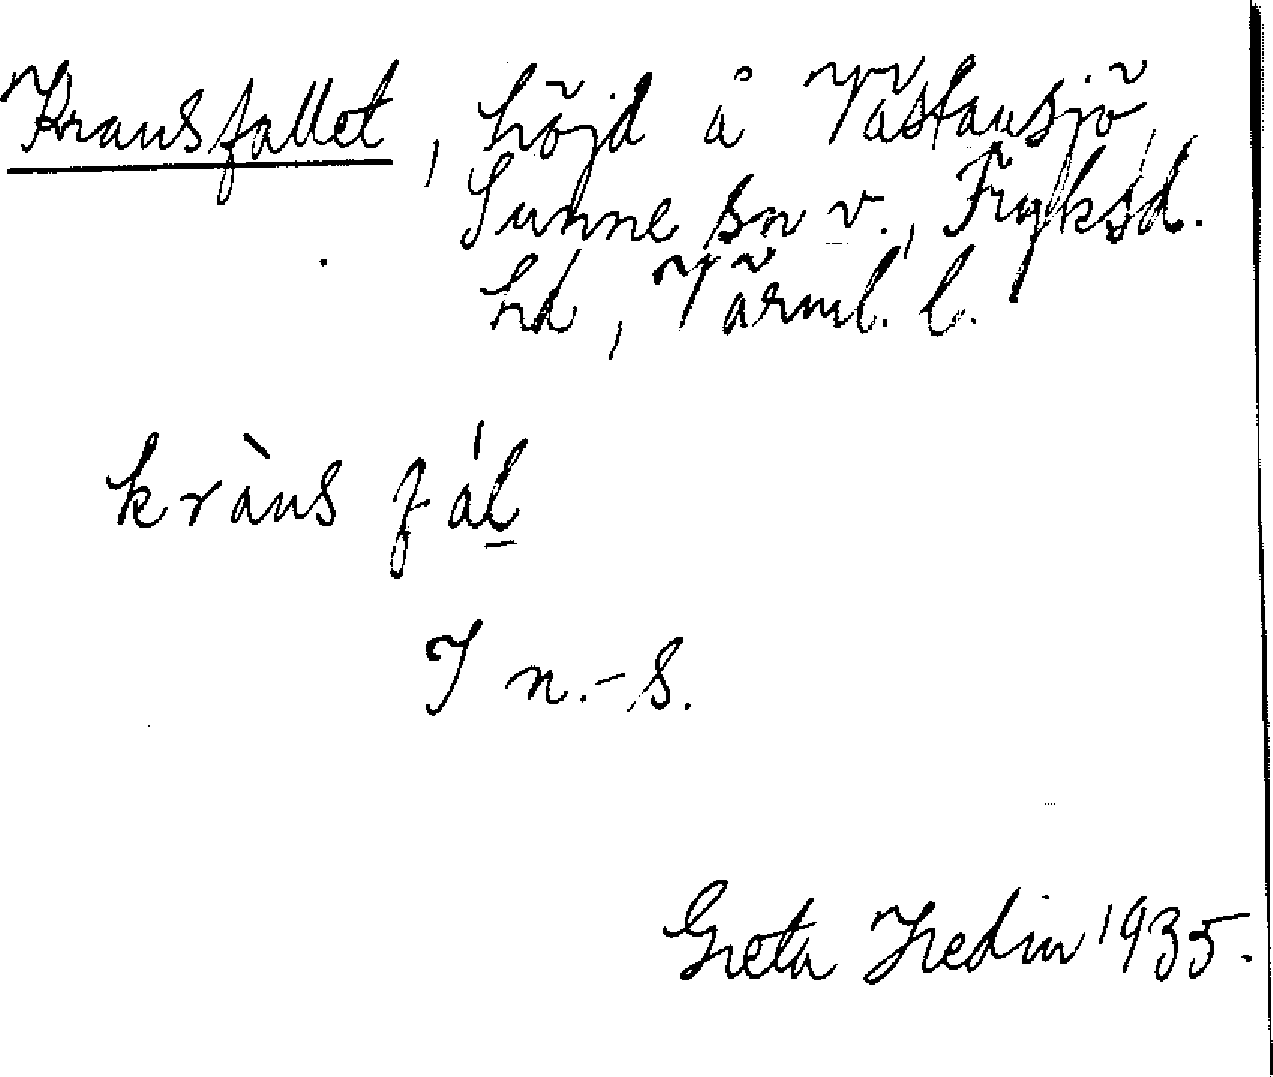 Kransfallet, höjd å Västansjö,
Sunne sn v., Fryksd.
hd, Värml. l.
kràns fál
I n.-s.
Greta Hedin 1935.